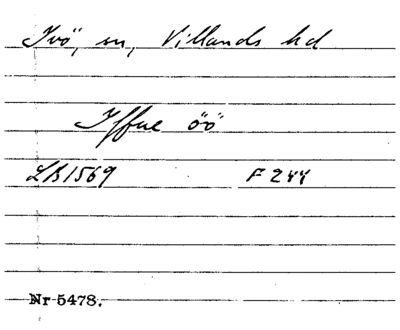 Ivö, sn, Villands hd
Iffue öö
LB 1569 F 244
Nr 5478.